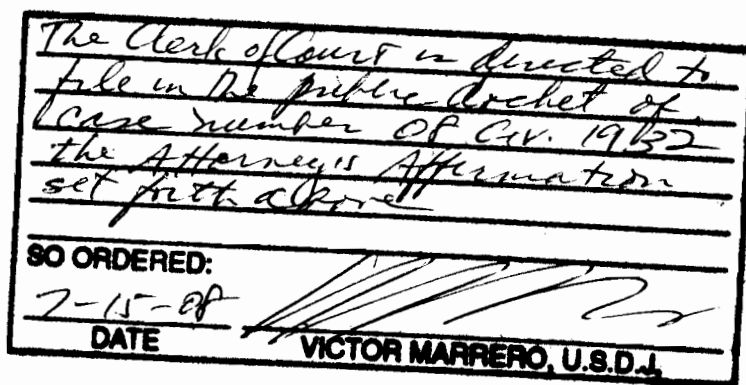 The Clerk of Court is directed to
file in the public docket of
case number 08 Civ. 1932
the Attorney's Affirmation
set forth above
SO ORDERED:
7-15-08
DATE
VICTOR MARRERO, U.S.D.J.